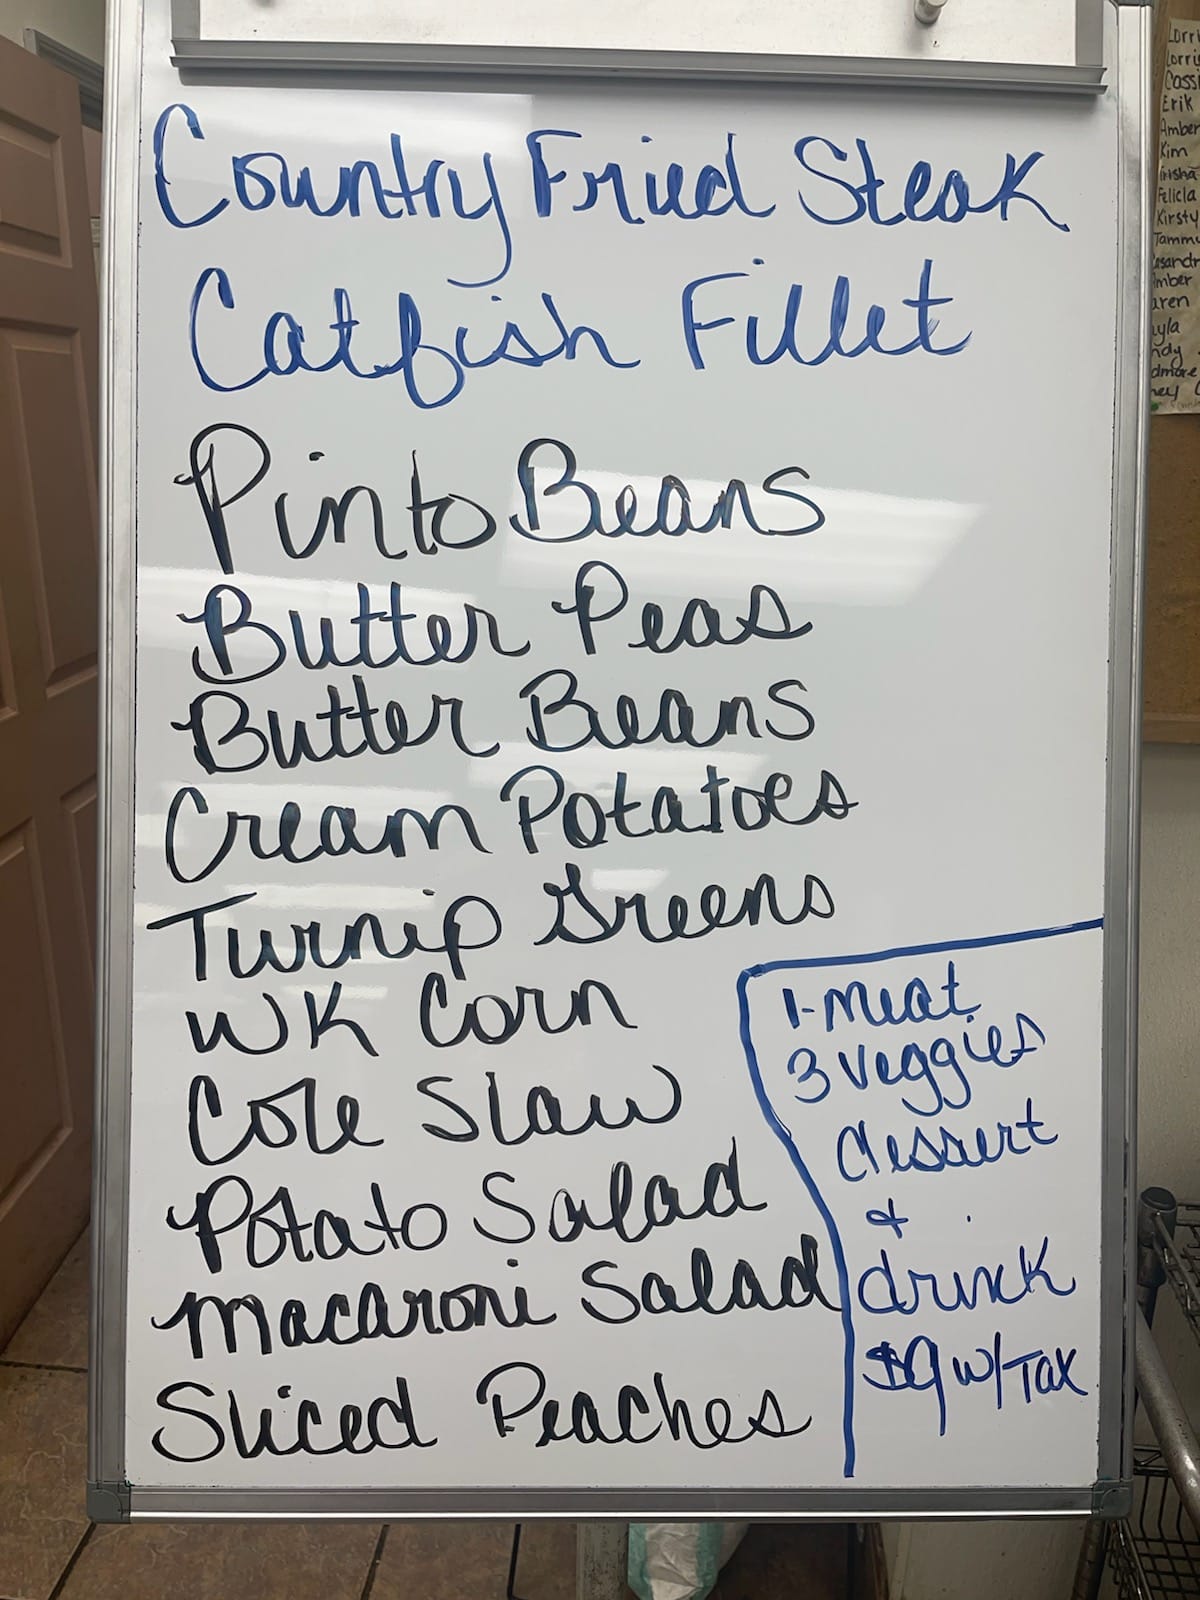 Country Fried Steak
Catfish Fillet
Pinto Beans
Butter Peas
Butter Beans
Cream Potatoes
Turnip Greens
WK Corn
Cole Slaw
Potato Salad
Macaroni Salad
Sliced Peaches
1-meat
3 veggies
dessert
&
drink
$9 w/Tax
Erik
Amber
Kim
Felicia
Kirsty